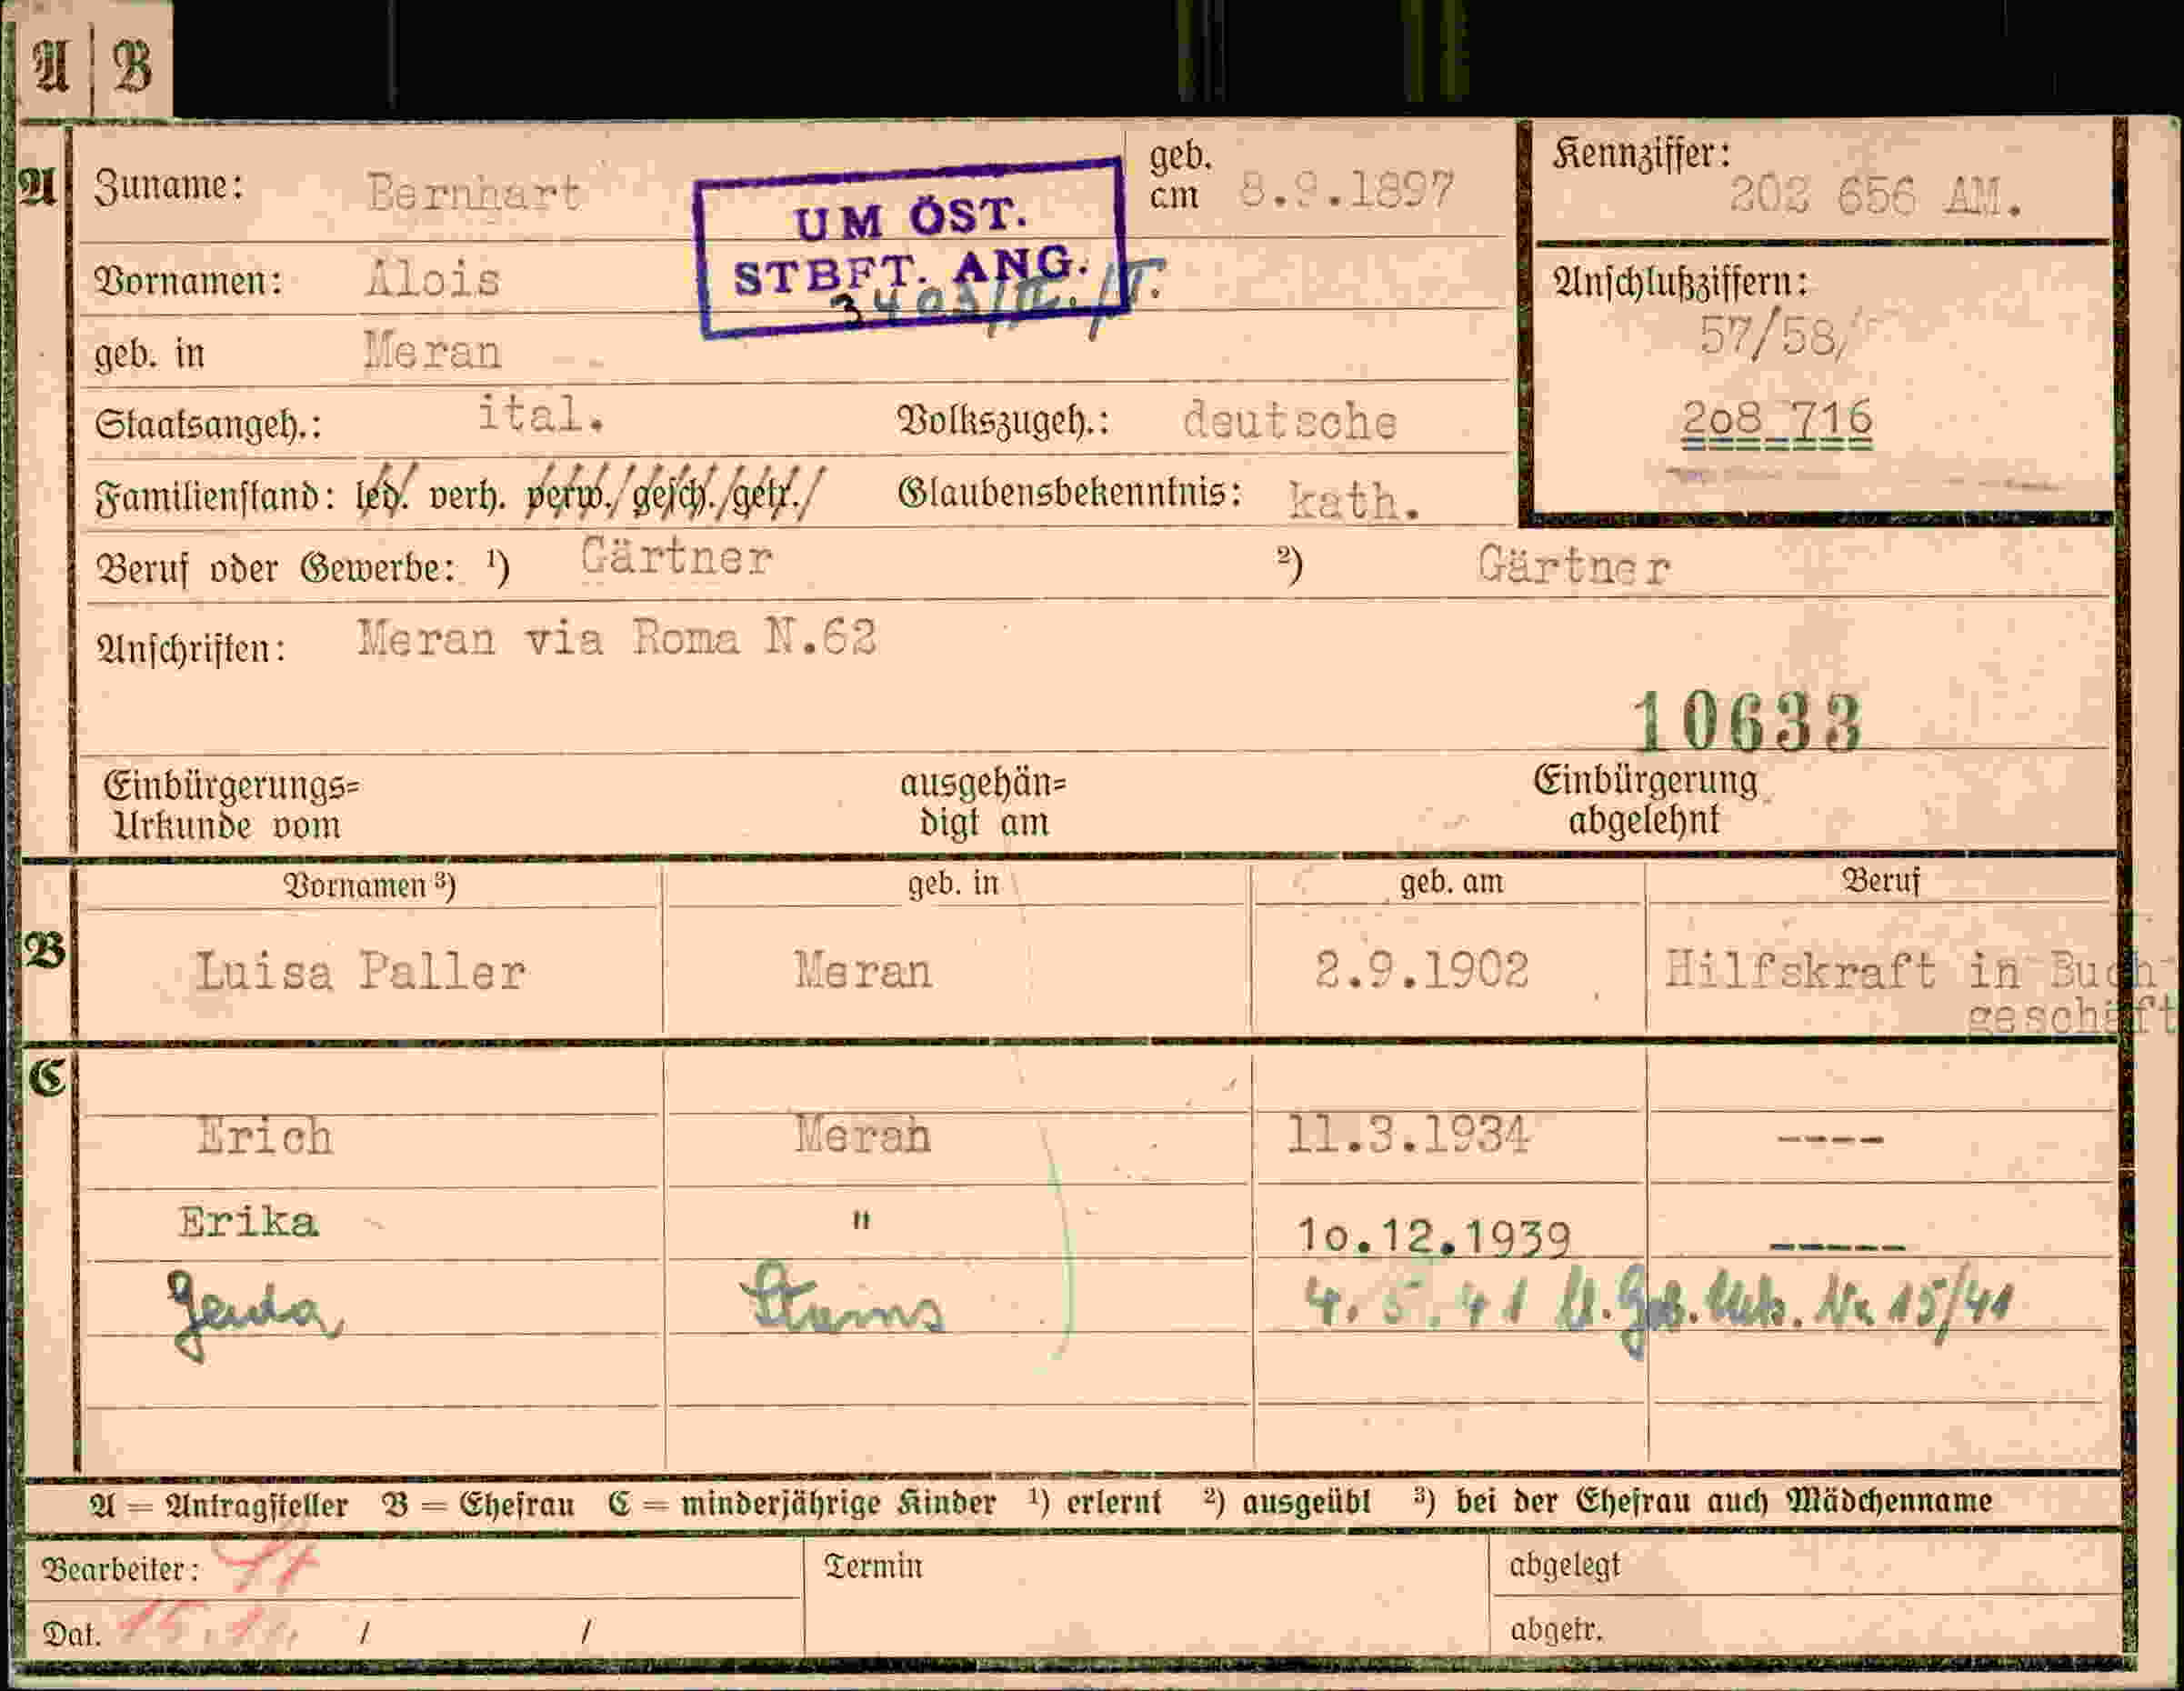 A | B
A
Zuname: Bernhart
geb. am 8.9.1897
Kennziffer: 202 656 AM.
UM ÖST.
STBFT. ANG.
Vornamen: Alois
Anschlußziffern:
57/58/
geb. in Meran
Staatsangeh.: ital. Volkszugeh.: deutsche
2o8 716
Familienstand: led. verh. verw./gesch./getr./ Glaubensbekenntnis: kath.
Beruf oder Gewerbe: ¹) Gärtner ²) Gärtner
Anschriften: Meran via Roma N.62
10633
Einbürgerungs= ausgehän= Einbürgerung
Urkunde vom digt am abgelehnt
Vornamen ³) geb. in geb. am Beruf
B
Luisa Paller Meran 2.9.1902 Hilfskraft in Buch
geschäft
C
Erich Meran 11.3.1934 ----
Erika " 1o.12.1939 -----
Gerda Stams 4. 5. 41 Geb. Urk. Nr. 15/41
A = Antragsteller B = Ehefrau C = minderjährige Kinder ¹) erlernt ²) ausgeübt ³) bei der Ehefrau auch Mädchenname
Bearbeiter: Termin abgelegt
Dat. / / abgetr.